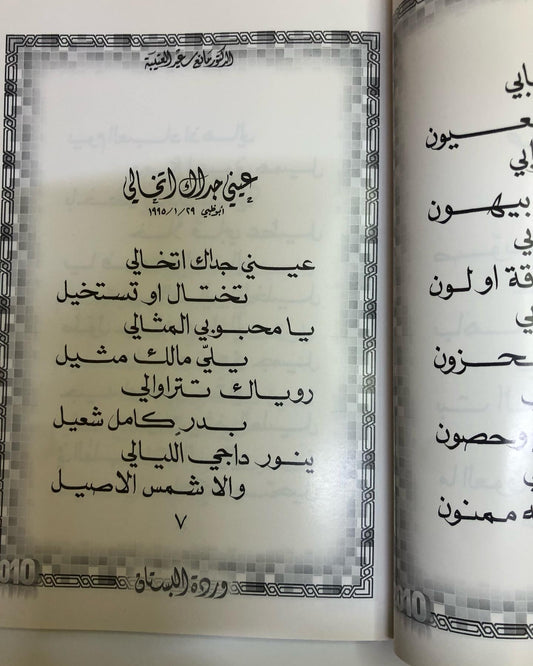 الدكتور مانع سعيد العتيبة
عيني جداك اتخالي
أبوظبي ٢٩/١/١٩٩٥
عيني جداك اتخالي
تختال او تستخيل
يا محبوبي المثالي
يلّي مالك مثيل
روياك تتراوالي
بدرٍ كامل شعيل
ينور داجي الليالي
والا شمس الاصيل
٧
وردة البستان
010
ـابي
ـعيون
ـابي
بيهون
ـبي
ـقة او لون
ـبي
ـحزون
وحصون
ـه ممنون
010